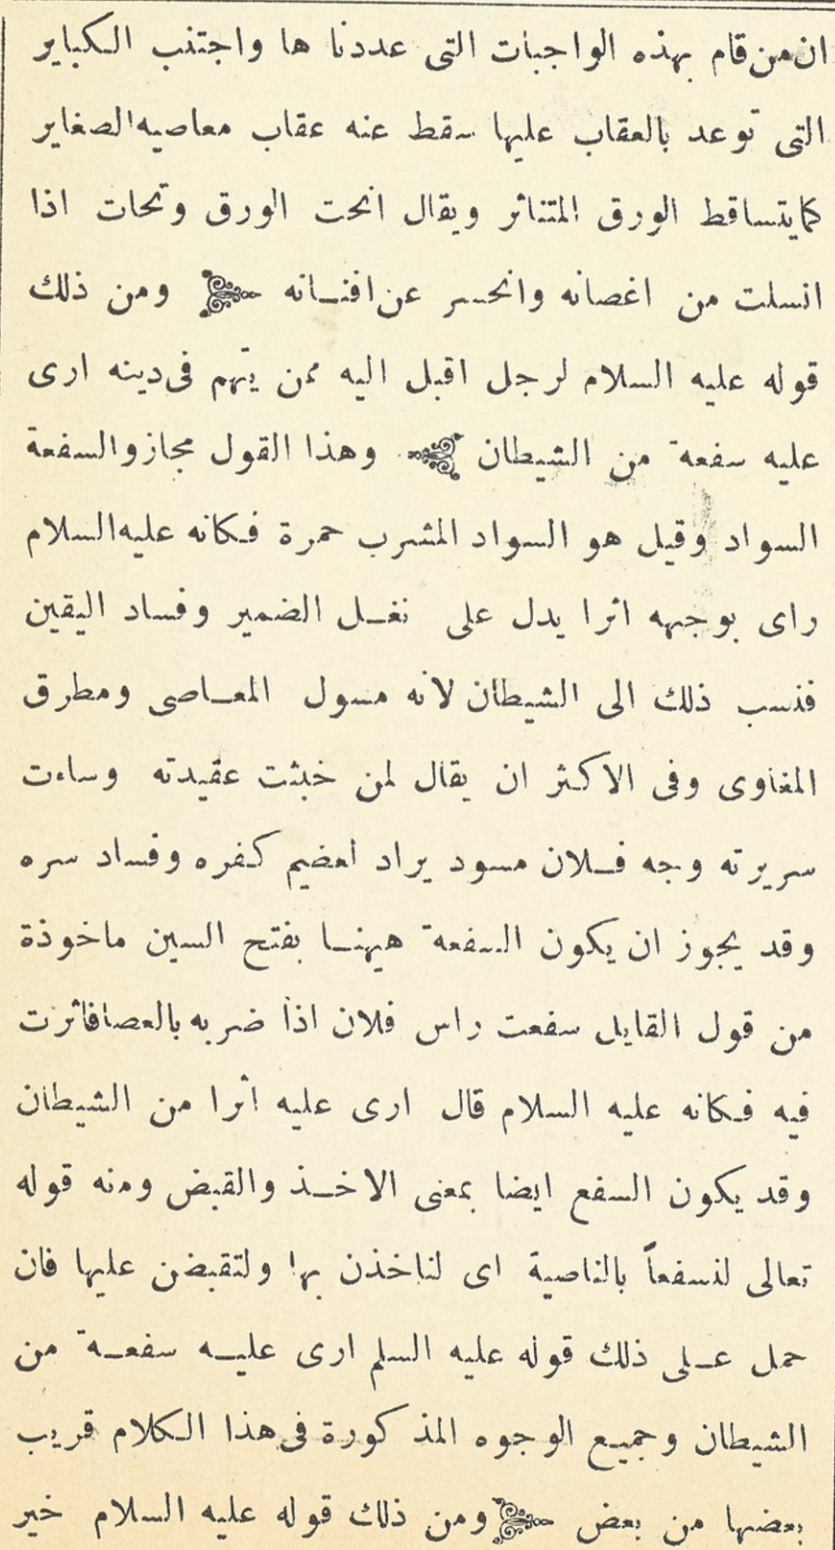 ان من قام بهذه الواجبات التى عددنا ها واجتنب الكباير
التى توعد بالعقاب عليها سقط عنه عقاب معاصيه الصغاير
كما يتساقط الورق المتناثر ويقال انحت الورق وتحات اذا
انسلت من اغصانه وانحسر عن افنانه ومن ذلك
قوله عليه السلام لرجل اقبل اليه ممن يتهم فى دينه ارى
عليه سفعة من الشيطان وهذا القول مجاز والسفعة
السواد وقيل هو السواد المشرب حمرة فكانه عليه السلام
راى بوجهه اثرا يدل على نغل الضمير وفساد اليقين
فنسب ذلك الى الشيطان لانه مسول المعاصى ومطرق
المغاوى وفى الاكثر ان يقال لمن خبثت عقيدته وساءت
سريرته وجه فلان مسود يراد لعضيم كفره وفساد سره
وقد يجوز ان يكون السفعة هيهنا بفتح السين ماخوذة
من قول القايل سفعت راس فلان اذا ضربه بالعصا فاثرت
فيه فكانه عليه السلام قال ارى عليه اثرا من الشيطان
وقد يكون السفع ايضا بمعنى الاخذ والقبض ومنه قوله
تعالى لنسفعاً بالناصية اى لناخذن بها ولتقبضن عليها فان
حمل على ذلك قوله عليه السلم ارى عليه سفعة من
الشيطان وجميع الوجوه المذكورة فى هذا الكلام قريب
بعضها من بعض ومن ذلك قوله عليه السلام خير